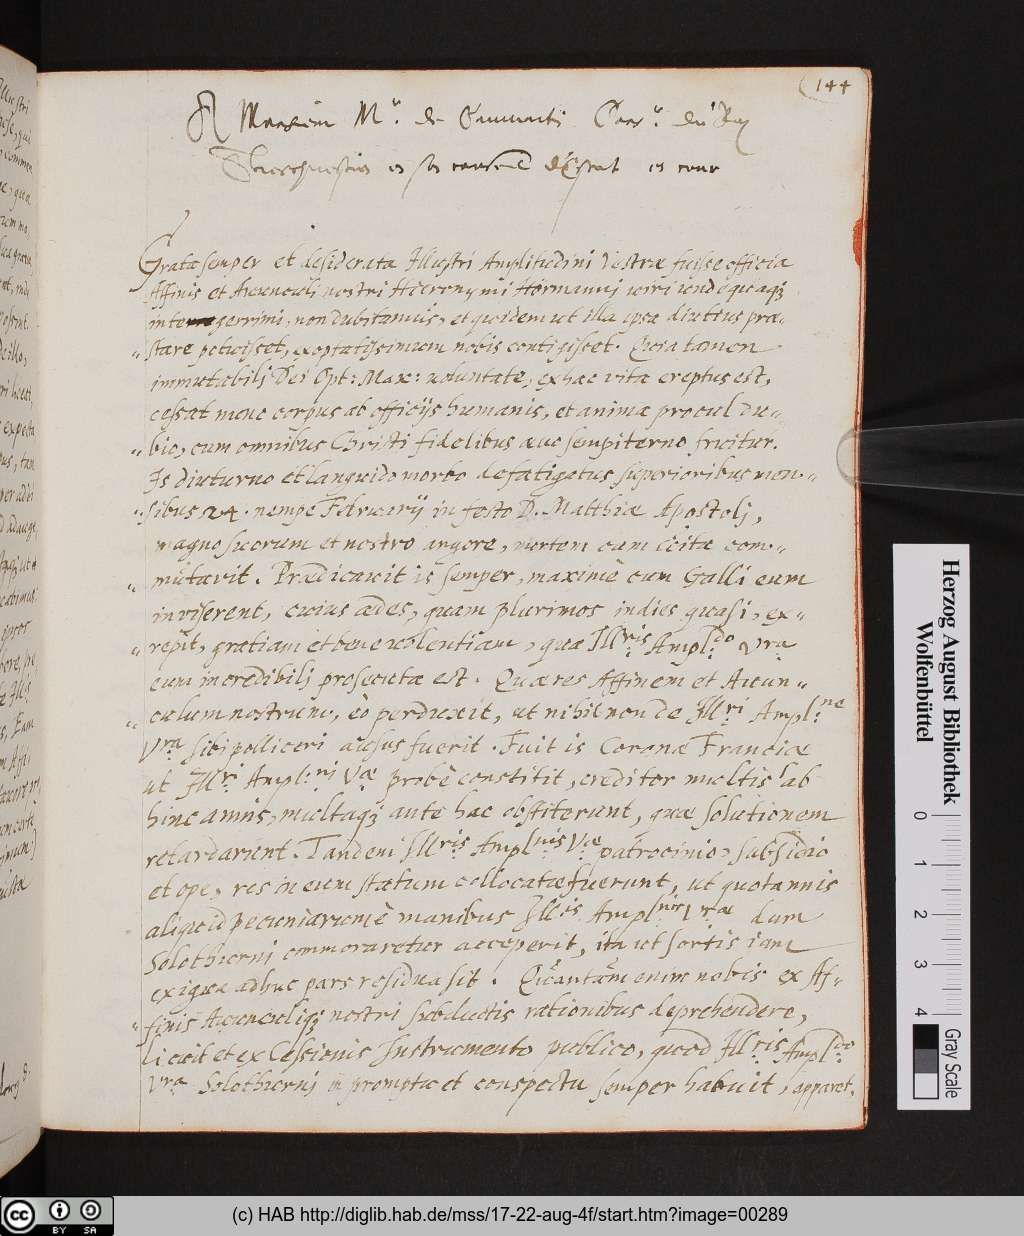 144
A Monsieur Mr. de Caumarti Conr. du Roy
et son conseil d'Estat et cour
Gratæ semper et desiderata Illustri Amplitudini Vestræ fuisse officia
Affinis et Auunculi nostri Hieronymi Hörmannj uiri undequaq₃
integerrimi, non dubitamus, et quidem ut illa ipsa diutius præ„
„stare potuisset, exoptatissimum nobis contigisset. Quia tamen
immutabilj Dei Opt: Max: uoluntate, ex hac vita ereptus est,
cessat nunc corpus ab officijs humanis, et anima procul du„
„bio, cum omnibus Christi fidelibus æuo sempiterno fruitur.
Is diuturno et languido morbo defatigatus superioribus men„
„sibus 24. nempe Februarij in festo D. Matthiæ Apostolj,
magno suorum et nostro angore, mortem cum uita com„
„mutauit. Prædicauit is semper, maximè cum Galli eum
inuiserent, cuius ædes, quam plurimos indies quasi, ex„
„repit, gratiam et beneuolentiam, quæ Illris Ampldo Vra
eum incredibilj prosecuta est. Quæ res Affinem et Auun„
„culum nostrum, eò perduxit, ut nihil non de Illri Amplne
Vra sibi polliceri ausus fuerit. Fuit is Coronæ Franciæ
ut Illri Amplni Væ probè constitit, creditor multis ab
hinc annis, multaq₃ ante hac obstiterunt, quæ solutionem
retardarunt. Tandem Illris Amplnis Væ patrocinio, subsidio
et ope, res in eum statum collocatæ fuerunt, ut quotannis
aliquid pecuniarum è manibus Illis Amplnis Vræ dum
Solothurnj commoraretur acceperit, ita ut sortis iam
exigua adhuc pars residua sit. Quantum enim nobis ex Af„
„finis Auunculiq₃ nostri subductis rationibus deprehendere,
licuit et ex Cessionis Instrumento publico, quod Illris Ampldo
Vra Solothurnj in promptu et conspectu semper habuit, apparet.
Herzog August Bibliothek
Wolfenbüttel
0 1 2 3 4
Gray Scale
cc BY SA
(c) HAB http://diglib.hab.de/mss/17-22-aug-4f/start.htm?image=00289